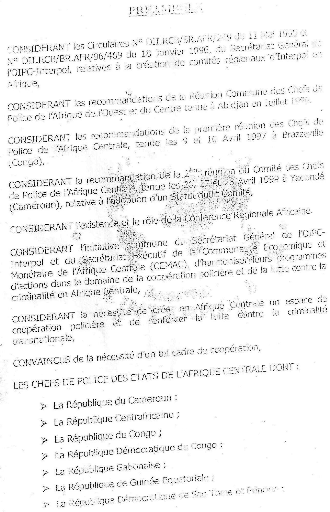 PREAMBULE
CONSIDERANT les Circulaires N° DII.RCI/BR.AFR/ du 11 Mai 1995 et
N° DII.RCI/BR.AFR/96/469 du 18 Janvier 1996, du Secrétariat Général de
l'OIPC-Interpol, relatives à la création de comités régionaux d'Interpol en
Afrique,
CONSIDERANT les recommandations de la Réunion Commune des Chefs de
Police de l'Afrique de l'Ouest et du Centre tenue à Abidjan en
CONSIDERANT les recommandations de la première réunion des Chefs de
Police de l'Afrique Centrale, tenue les 9 et 10 Avril 1997 à Brazzaville
(Congo),
CONSIDERANT la recommandation de la réunion du Comité des Chefs
de Police de l'Afrique Centrale, tenue les Avril 1999 à Yaoundé
(Cameroun), relative à l'adoption d'un Statut du Comité,
CONSIDERANT l'existence et le rôle de la Conférence Régionale Africaine,
CONSIDERANT l'initiative commune du Secrétariat Général de l'OIPC-
Interpol et du Secrétariat Exécutif de la Communauté Economique et
Monétaire de l'Afrique Centrale (CEMAC), d'harmoniser leurs programmes
d'actions dans le domaine de la coopération policière et de la lutte contre la
criminalité en Afrique Centrale,
CONSIDERANT la nécessité de créer en Afrique Centrale un espace de
coopération policière et de renforcer la lutte contre la criminalité
transnationale,
CONVAINCUS de la nécessité d'un tel cadre de coopération,
LES CHEFS DE POLICE DES ETATS DE L'AFRIQUE CENTRALE DONT :
➢ La République du Cameroun ;
➢ La République Centrafricaine ;
➢ La République du Congo ;
➢ La République Démocratique du Congo ;
➢ La République Gabonaise ;
➢ La République de Guinée Equatoriale ;
➢ La République Démocratique de Sao Tomé et Principe ;